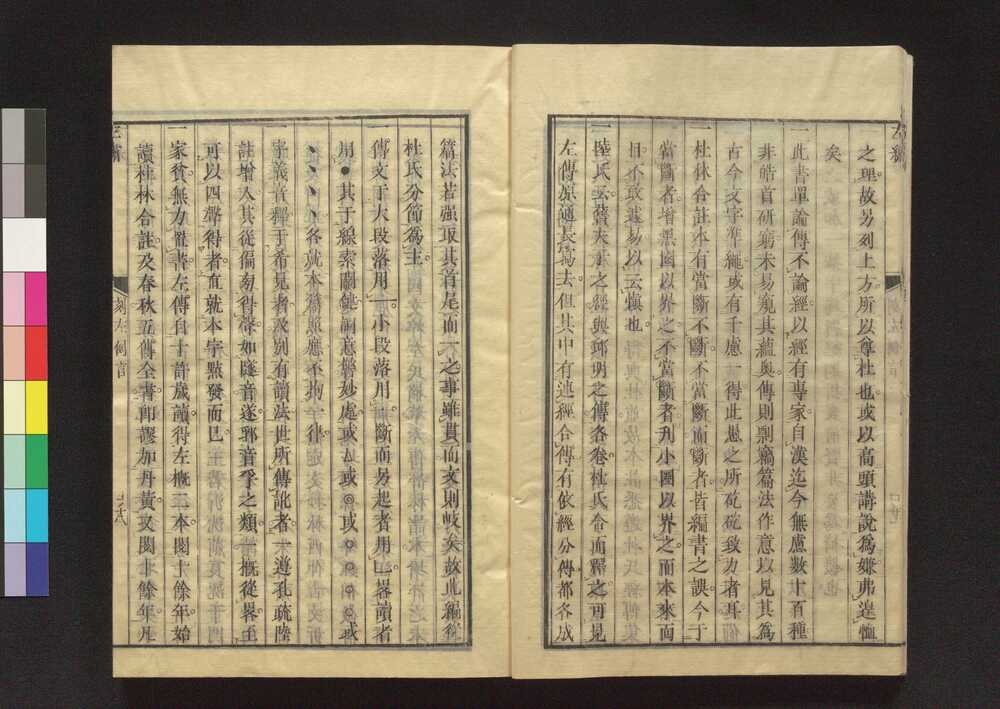 之理故另刻上方所以尊杜也或以高頭講說為嫌弗遑恤
矣
一此書單論傳不論經以經有專家自漢迄今無慮數十百種
非皓首研窮未易窺其蘊奧傳則剽竊篇法作意以見其為
古今文字準繩或有千慮一得此愚之所矻矻致力者耳
一杜林合註本有當斷不斷不當斷而斷者皆編書之誤今于
當斷者增黑圈以界之不當斷者刊小圈以界之而本來面
目不敢遽易以云愼也
一陸氏云舊夫子之經與邱明之傳各卷杜氏合而釋之可見
左傳原廼長篇去但其中有連經合傳有依經分傳都各成
左繡
刻左例言
篇法若强取其首尾而一之事雖貫而文則岐矣故此編從
杜氏分節為主
一傳文于大段落用 小段落用 斷而另起者用 畧讀者
用 其于線索關鍵詞意警妙處或 或 或 或
各就本篇照應不拘一律
一字義音釋于希見者及別有讀法世所傳訛者一遵孔疏陸
註增入其從偏旁得聲如隧音遂郛音孚之類槪從畧至
可以四聲得者直就本字點發而已
一家貧無力置書左傳自十許歲讀得左概二本閱十餘年始
讀杜林合註及春秋五傳全書卽謬加丹黃又閱十餘年凡
左繡
刻左例言